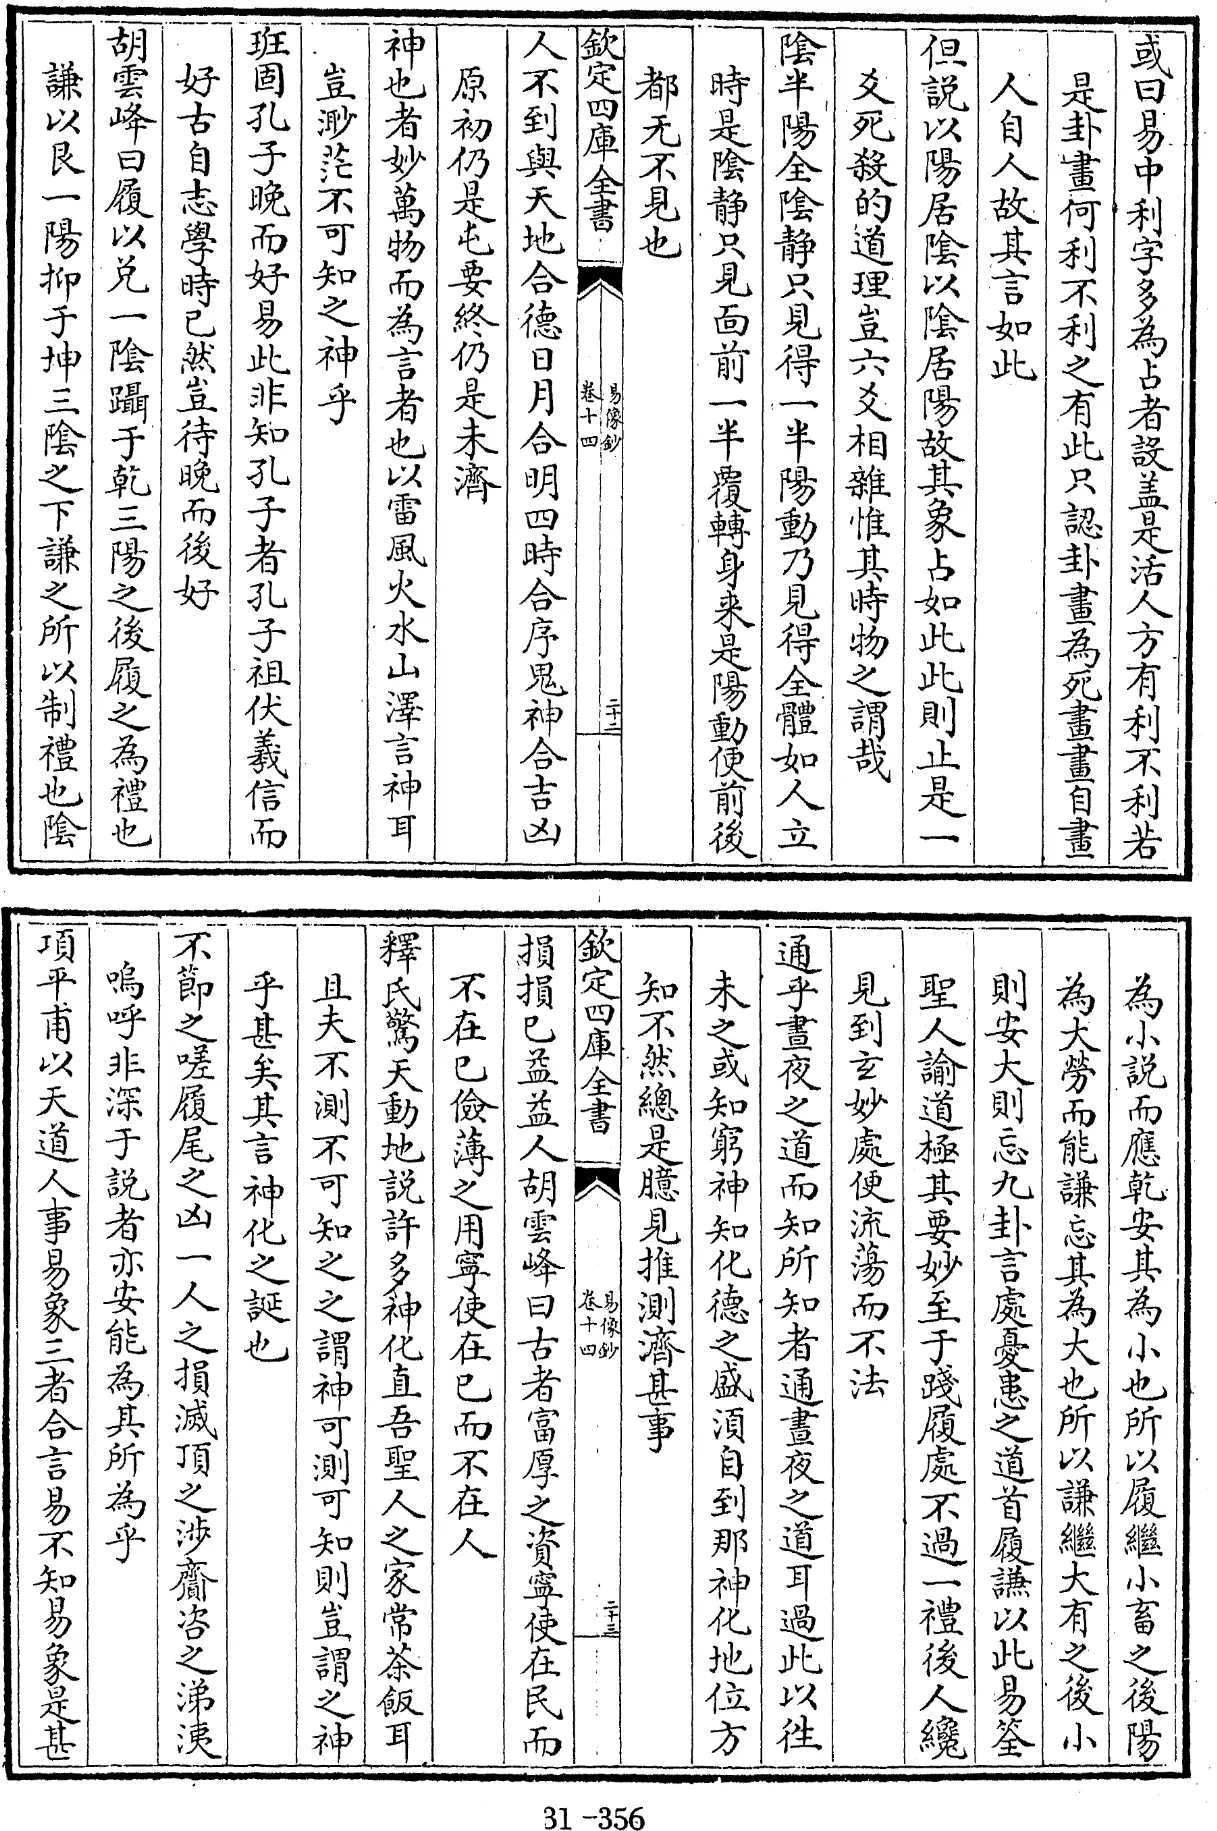 或曰易中利字多為占者設盖是活人方有利不利若
是卦畫何利不利之有此只認卦畫為死畫畫自畫
人自人故其言如此
但説以陽居陰以陰居陽故其象占如此此則止是一
爻死殺的道理豈六爻相雜惟其時物之謂哉
陰半陽全陰静只見得一半陽動乃見得全體如人立
時是陰静只見面前一半覆轉身来是陽動便前後
都无不見也
欽定四庫全書
易像鈔
卷十四
二十二
人不到與天地合德日月合明四時合序鬼神合吉凶
原初仍是屯要終仍是未濟
神也者妙萬物而為言者也以雷風火水山澤言神耳
豈渺茫不可知之神乎
班固孔子晚而好易此非知孔子者孔子祖伏羲信而
好古自志學時已然豈待晚而後好
胡雲峰曰履以兑一陰躡于乾三陽之後履之為禮也
謙以艮一陽抑于坤三陰之下謙之所以制禮也陰
為小説而應乾安其為小也所以履繼小畜之後陽
為大勞而能謙忘其為大也所以謙繼大有之後小
則安大則忘九卦言處憂患之道首履謙以此易筌
聖人諭道極其要妙至于踐履處不過一禮後人纔
見到玄妙處便流蕩而不法
通乎晝夜之道而知所知者通晝夜之道耳過此以徃
未之或知窮神知化德之盛湏自到那神化地位方
知不然總是臆見推測濟甚事
欽定四庫全書
易像鈔
卷十四
二十三
損損已益益人胡雲峰曰古者富厚之資寧使在民而
不在已儉薄之用寧使在已而不在人
釋氏驚天動地説許多神化直吾聖人之家常茶飯耳
且夫不測不可知之之謂神可測可知則豈謂之神
乎甚矣其言神化之誕也
不節之嗟履尾之凶一人之損滅頂之涉齎咨之涕洟
嗚呼非深于説者亦安能為其所為乎
項平甫以天道人事易象三者合言易不知易象是甚
31-356